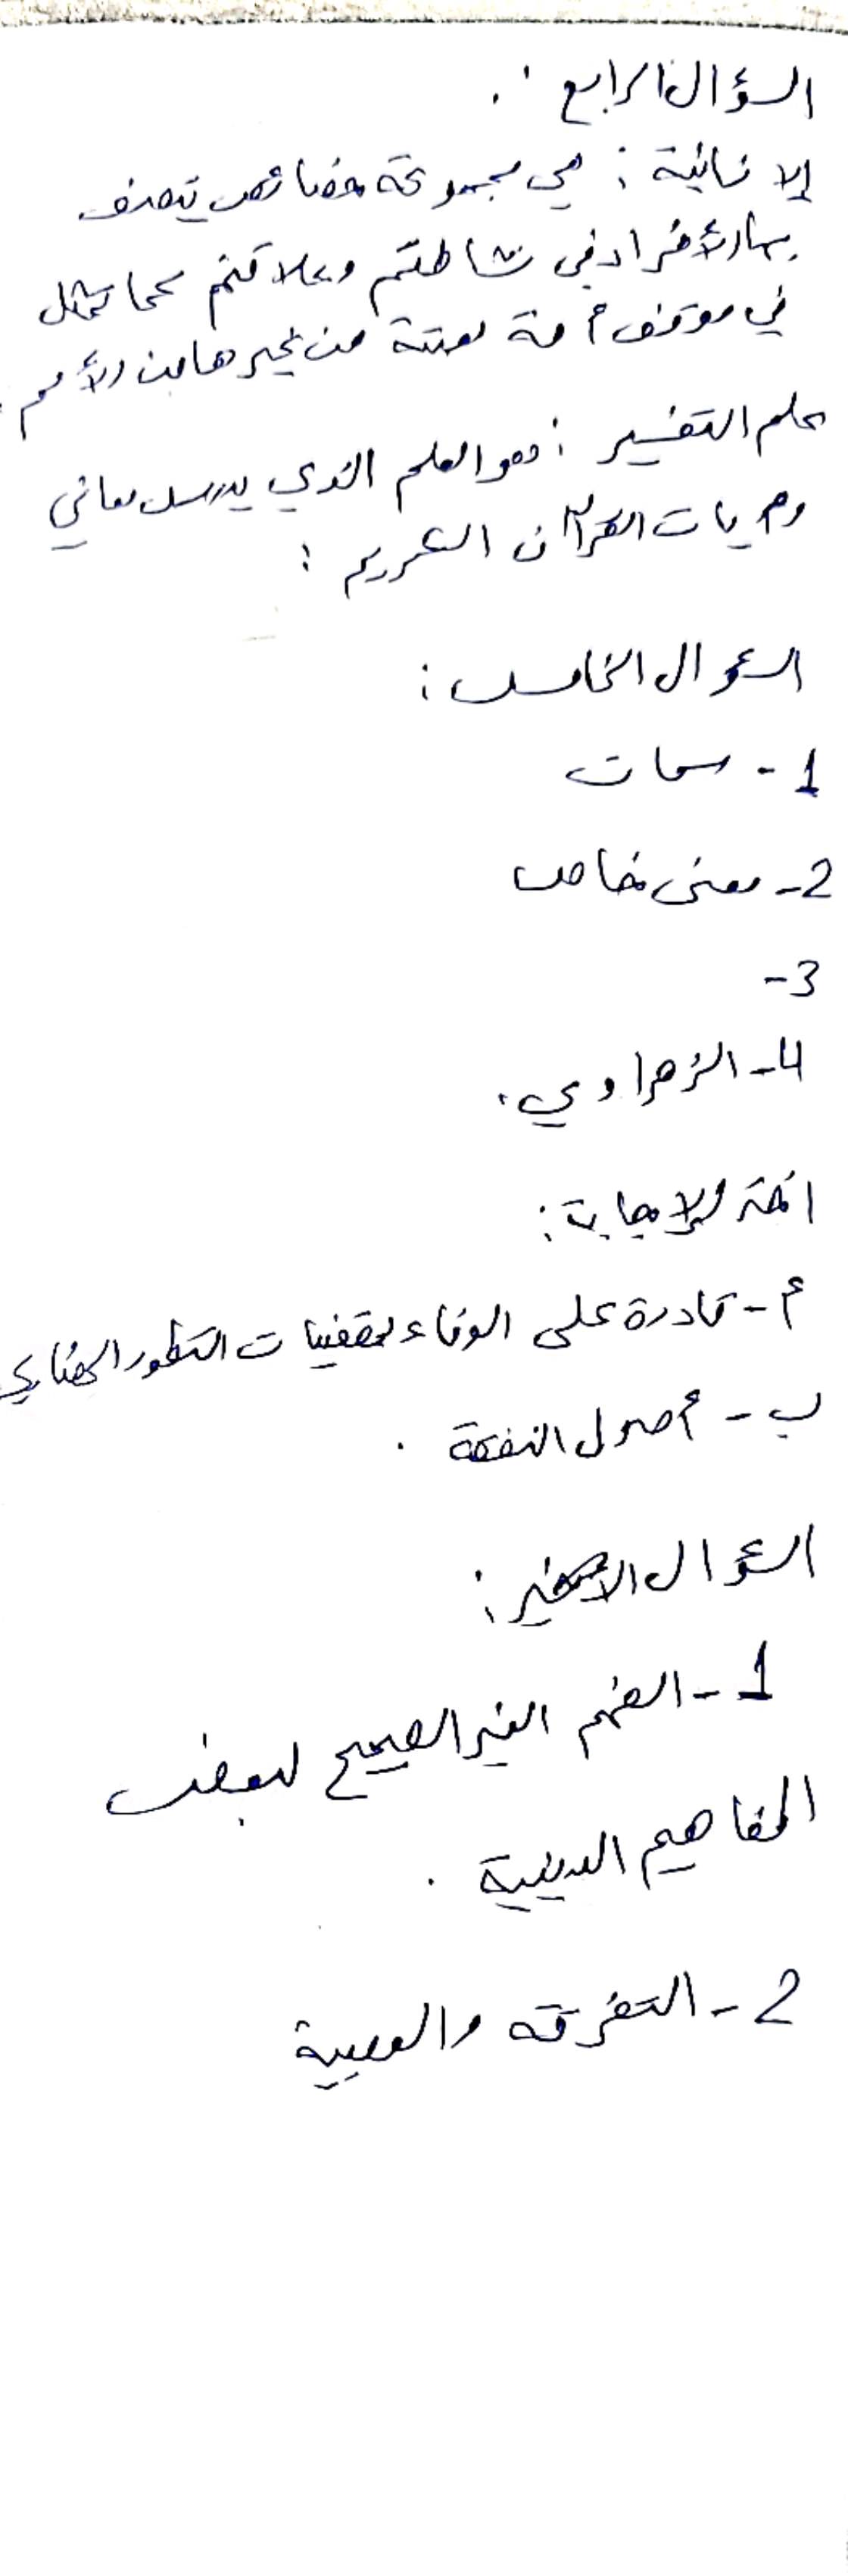 السؤال الرابع :
الإنسانية : هي مجموعة خصائص تتصف
بها الأفراد في نشاطتهم وعلاقتهم كما تتمثل
في موقف أمة معينة من غيرها من الأمم .
علم التفسير : هو العلم الذي يدرس معاني
وآيات القرآن الكريم :
السؤال الخامس :
1 - سمات
2 - معنى خاص
3 -
4 - الزهراوي .
اختر الإجابة :
أ - قادرة على الوفاء بمقتضيات التطور الحضاري
ب - أصول الفقه .
السؤال الأخير :
1 - الفهم الغير الصحيح لبعض
المفاهيم الدينية .
2 - التفرقة والعصبية